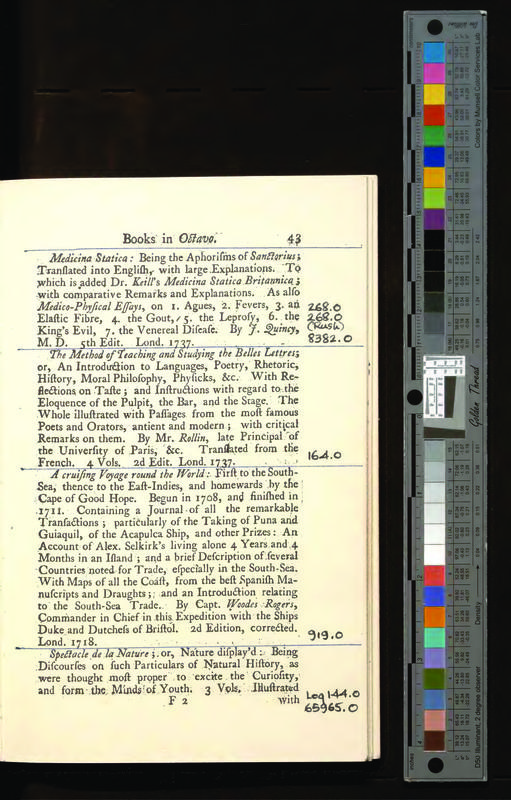 Books in Octavo. 43
Medicina Statica: Being the Aphoriſms of Sanctorius;
Tranſlated into Engliſh, with large Explanations. To
which is added Dr. Keill's Medicina Statica Britannica;
with comparative Remarks and Explanations. As alſo
Medico-Phyſical Eſſays, on 1. Agues, 2. Fevers, 3. an
Elaſtic Fibre, 4. the Gout, 5. the Leproſy, 6. the
King's Evil, 7. the Venereal Diſeaſe. By J. Quincy,
M. D. 5th Edit. Lond. 1737.
268.0
268.0
(Rush)
8382.0
The Method of Teaching and Studying the Belles Lettres;
or, An Introduction to Languages, Poetry, Rhetoric,
Hiſtory, Moral Philoſophy, Phyſicks, &c. With Re-
flections on Taſte; and Inſtructions with regard to the
Eloquence of the Pulpit, the Bar, and the Stage. The
Whole illuſtrated with Paſſages from the moſt famous
Poets and Orators, antient and modern; with critical
Remarks on them. By Mr. Rollin, late Principal of
the Univerſity of Paris, &c. Tranſlated from the
French. 4 Vols. 2d Edit. Lond. 1737.
164.0
A cruiſing Voyage round the World: Firſt to the South-
Sea, thence to the Eaſt-Indies, and homewards by the
Cape of Good Hope. Begun in 1708, and finiſhed in
1711. Containing a Journal of all the remarkable
Tranſactions; particularly of the Taking of Puna and
Guiaquil, of the Acapulca Ship, and other Prizes: An
Account of Alex. Selkirk's living alone 4 Years and 4
Months in an Iſland; and a brief Deſcription of ſeveral
Countries noted for Trade, eſpecially in the South-Sea.
With Maps of all the Coaſt, from the beſt Spaniſh Ma-
nuſcripts and Draughts; and an Introduction relating
to the South-Sea Trade. By Capt. Woodes Rogers,
Commander in Chief in this Expedition with the Ships
Duke and Dutcheſs of Briſtol. 2d Edition, corrected.
Lond. 1718.
919.0
Spectacle de la Nature; or, Nature diſplay'd: Being
Diſcourſes on ſuch Particulars of Natural Hiſtory, as
were thought moſt proper to excite the Curioſity,
and form the Minds of Youth. 3 Vols. Illuſtrated
F 2 with
Log 144.0
65965.0
Colors by Munsell Color Services Lab
Golden Thread
Density
D50 Illuminant, 2 degree observer